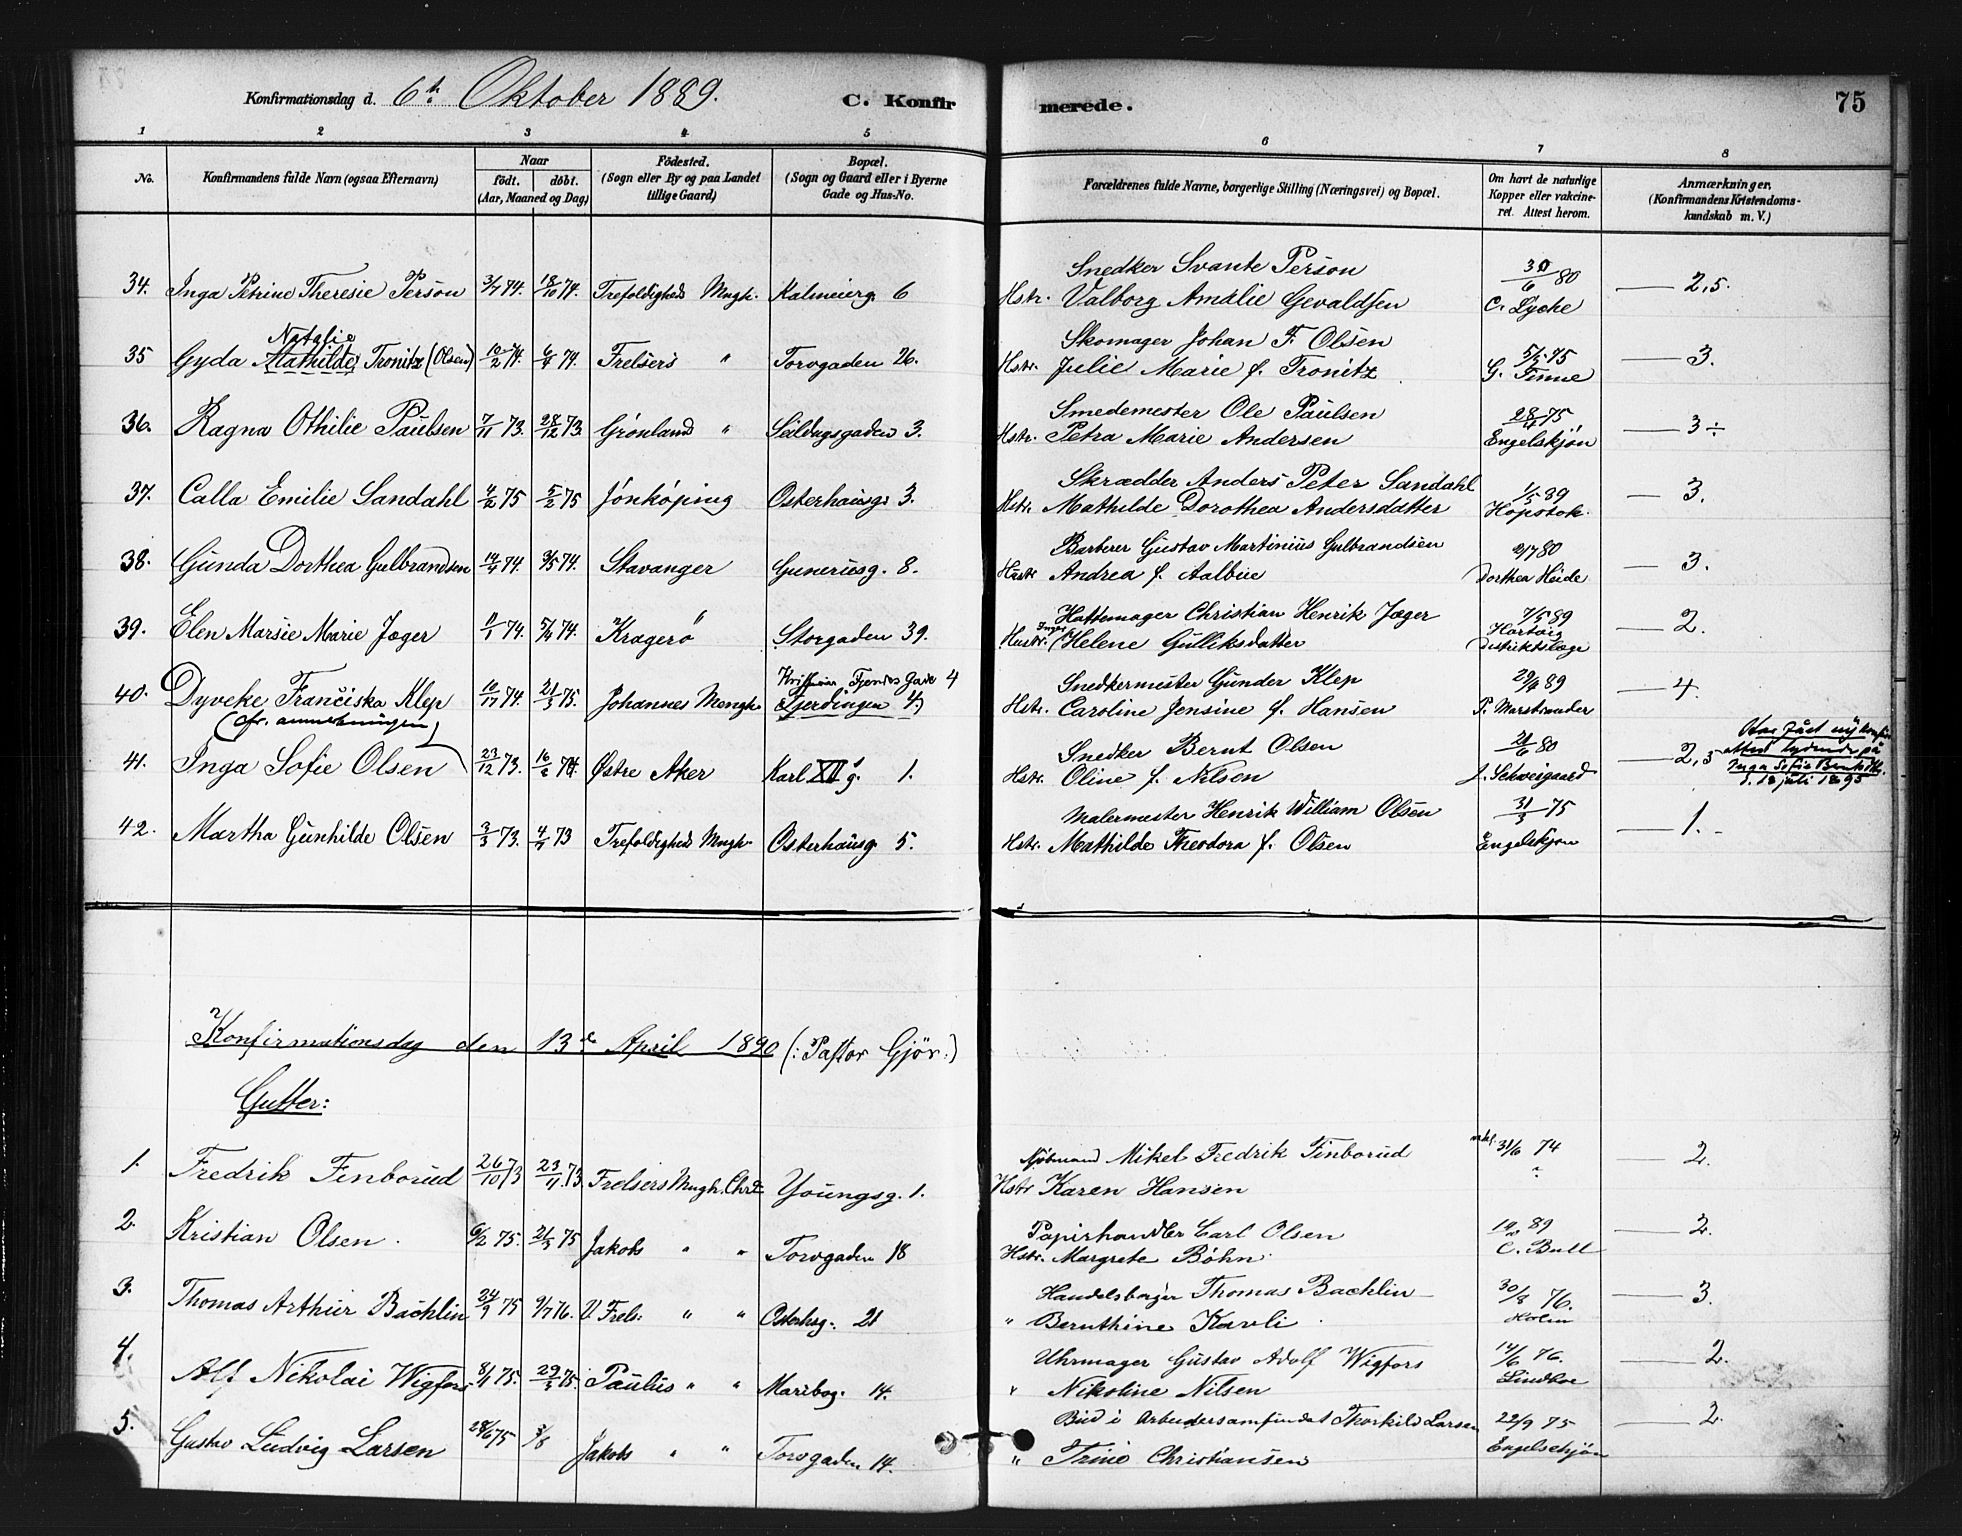 Konfirmationsdag d. 6te Oktober 1889. C. Konfirmerede. 75
1 2 3 4 5 6 7 8
No. Konfirmandens fulde Navn (ogsaa Efternavn) Naar födt. döbt. (Aar, Maaned og Dag) Födested. (Sogn eller By og paa Landet tillige Gaard) Bopæl. (Sogn og Gaard eller i Byerne Gade og Hus-No. Forældrenes fulde Navne, borgerlige Stilling (Næringsvei) og Bopæl. Om havt de naturlige Kopper eller vakcineret. Attest herom. Anmærkninger. (Konfirmandens Kristendomskundskab m. V.)
Snedker Svante Person
34. Inga Petrine Theresie Person 3/7 74. 18/10 74. Trefoldigheds Mngh. Kalmeierg. 6 Hstr. Valborg Amalie Gevaldsen 30/6 80 C. Lyche 2,5.
Natalie Skomager Johan F. Olsen
35 Gyda Mathilde Tronitz (Olsen) 10/2 74. 6/4 74. Frelsers " Torvgaden 26. Hstr. Julie Marie f. Tronitz 5/5 75 G. Finne 3.
Smedemester Ole Paulsen
36. Ragna Othilie Paulsen 7/11 73. 28/12 73. Grönland " Seildugsgaden 3. Hstr. Petra Marie Andersen 28/4 75 Engelskjøn 3÷
Skrædder Anders Peter Sandahl
37. Calla Emilie Sandahl 4/2 75 5/2 75 Jönköping Osterhausg. 3. Hstr. Mathilde Dorothea Andersdatter 1/5 89 Hopstok. 3.
Barberer Gustav Martinius Gulbrandsen
38. Gunda Dorthea Gulbrandsen 14/4 74. 3/5 74. Stavanger Guneriusg. 8. Hustr Andrea f. Aalbue 2/7 80 Dorthea Heide 3.
Hattemager Christian Henrik Jæger
39. Elen Marsie Marie Jæger 11/1 74. 5/4 74. Kragerö Storgaden 39. Hustr. Inger Helene Gulliksdatter 7/5 89 Distriktslæge 2.
Kristian Tjendes Gade 4 Snedkermester Gunder Klep
40. Dyveke Franciska Klep 74. 21/3 75. Johannes Mengh. Fjerdingen 4) Hstr. Caroline Jensine f. Hansen 29/4 89 P. Marstrander 4.
(cfr. anmerkningen) Snedker Bernt Olsen
41. Inga Sofie Olsen 23/12 73. 74. Østre Aker Karl XII g. 1. Hstr. Oline f. Nilsen 21/6 80 J. Schweigaard 2,5
Har fået ny konfir. attest lydende på Inga Sofie 18 juli 1895
Malermester Henrik William Olsen
42. Martha Gunhilde Olsen 3/3 73. 4/4 73 Trefoldigheds Mngh. Osterhausg. 5. Hstr. Mathilde Theodora f. Olsen 31/3 75 Engelskjøn 1.
Konfirmationsdag den 13de April 1890 (: Pastor Gjör :)
Gutter:
1. Fredrik Finborud 26/10 73 23/11 73 Frelsers Mngh. Chra Youngsg. 1. Mikel Fredrik Finborud Hstr Karen Hansen 31/6 74 2.
2. Kristian Olsen 6/2 75. 21/3 75 Jakobs " " Torvgaden 18 Papirhandler Carl Olsen Hstr. Margrete Böhn 89 C. Bull 2.
3. Thomas Arthur Bachlin 24/9 75 9/7 76. V. Frels: " " Osterhsg. 21 Handelsborger Thomas Bachlin " Bernthine Kavli 30/8 76. Holm 3.
4. Alf Nikolai Wigfors 8/1 75. 29/3 75. Paulus " " Maribog. 14. Uhrmager Gustav Adolf Wigfors " Nikoline Nilsen 14/6 76. Lindboe 2.
5. Gustav Ludvig Larsen 28/6 75 3/8 Jakobs " " Torvgaden 14. Bud i Arbeidersamfundet Thorkild Larsen " Trine Christiansen 22/9 75 Engelschjøn 2.